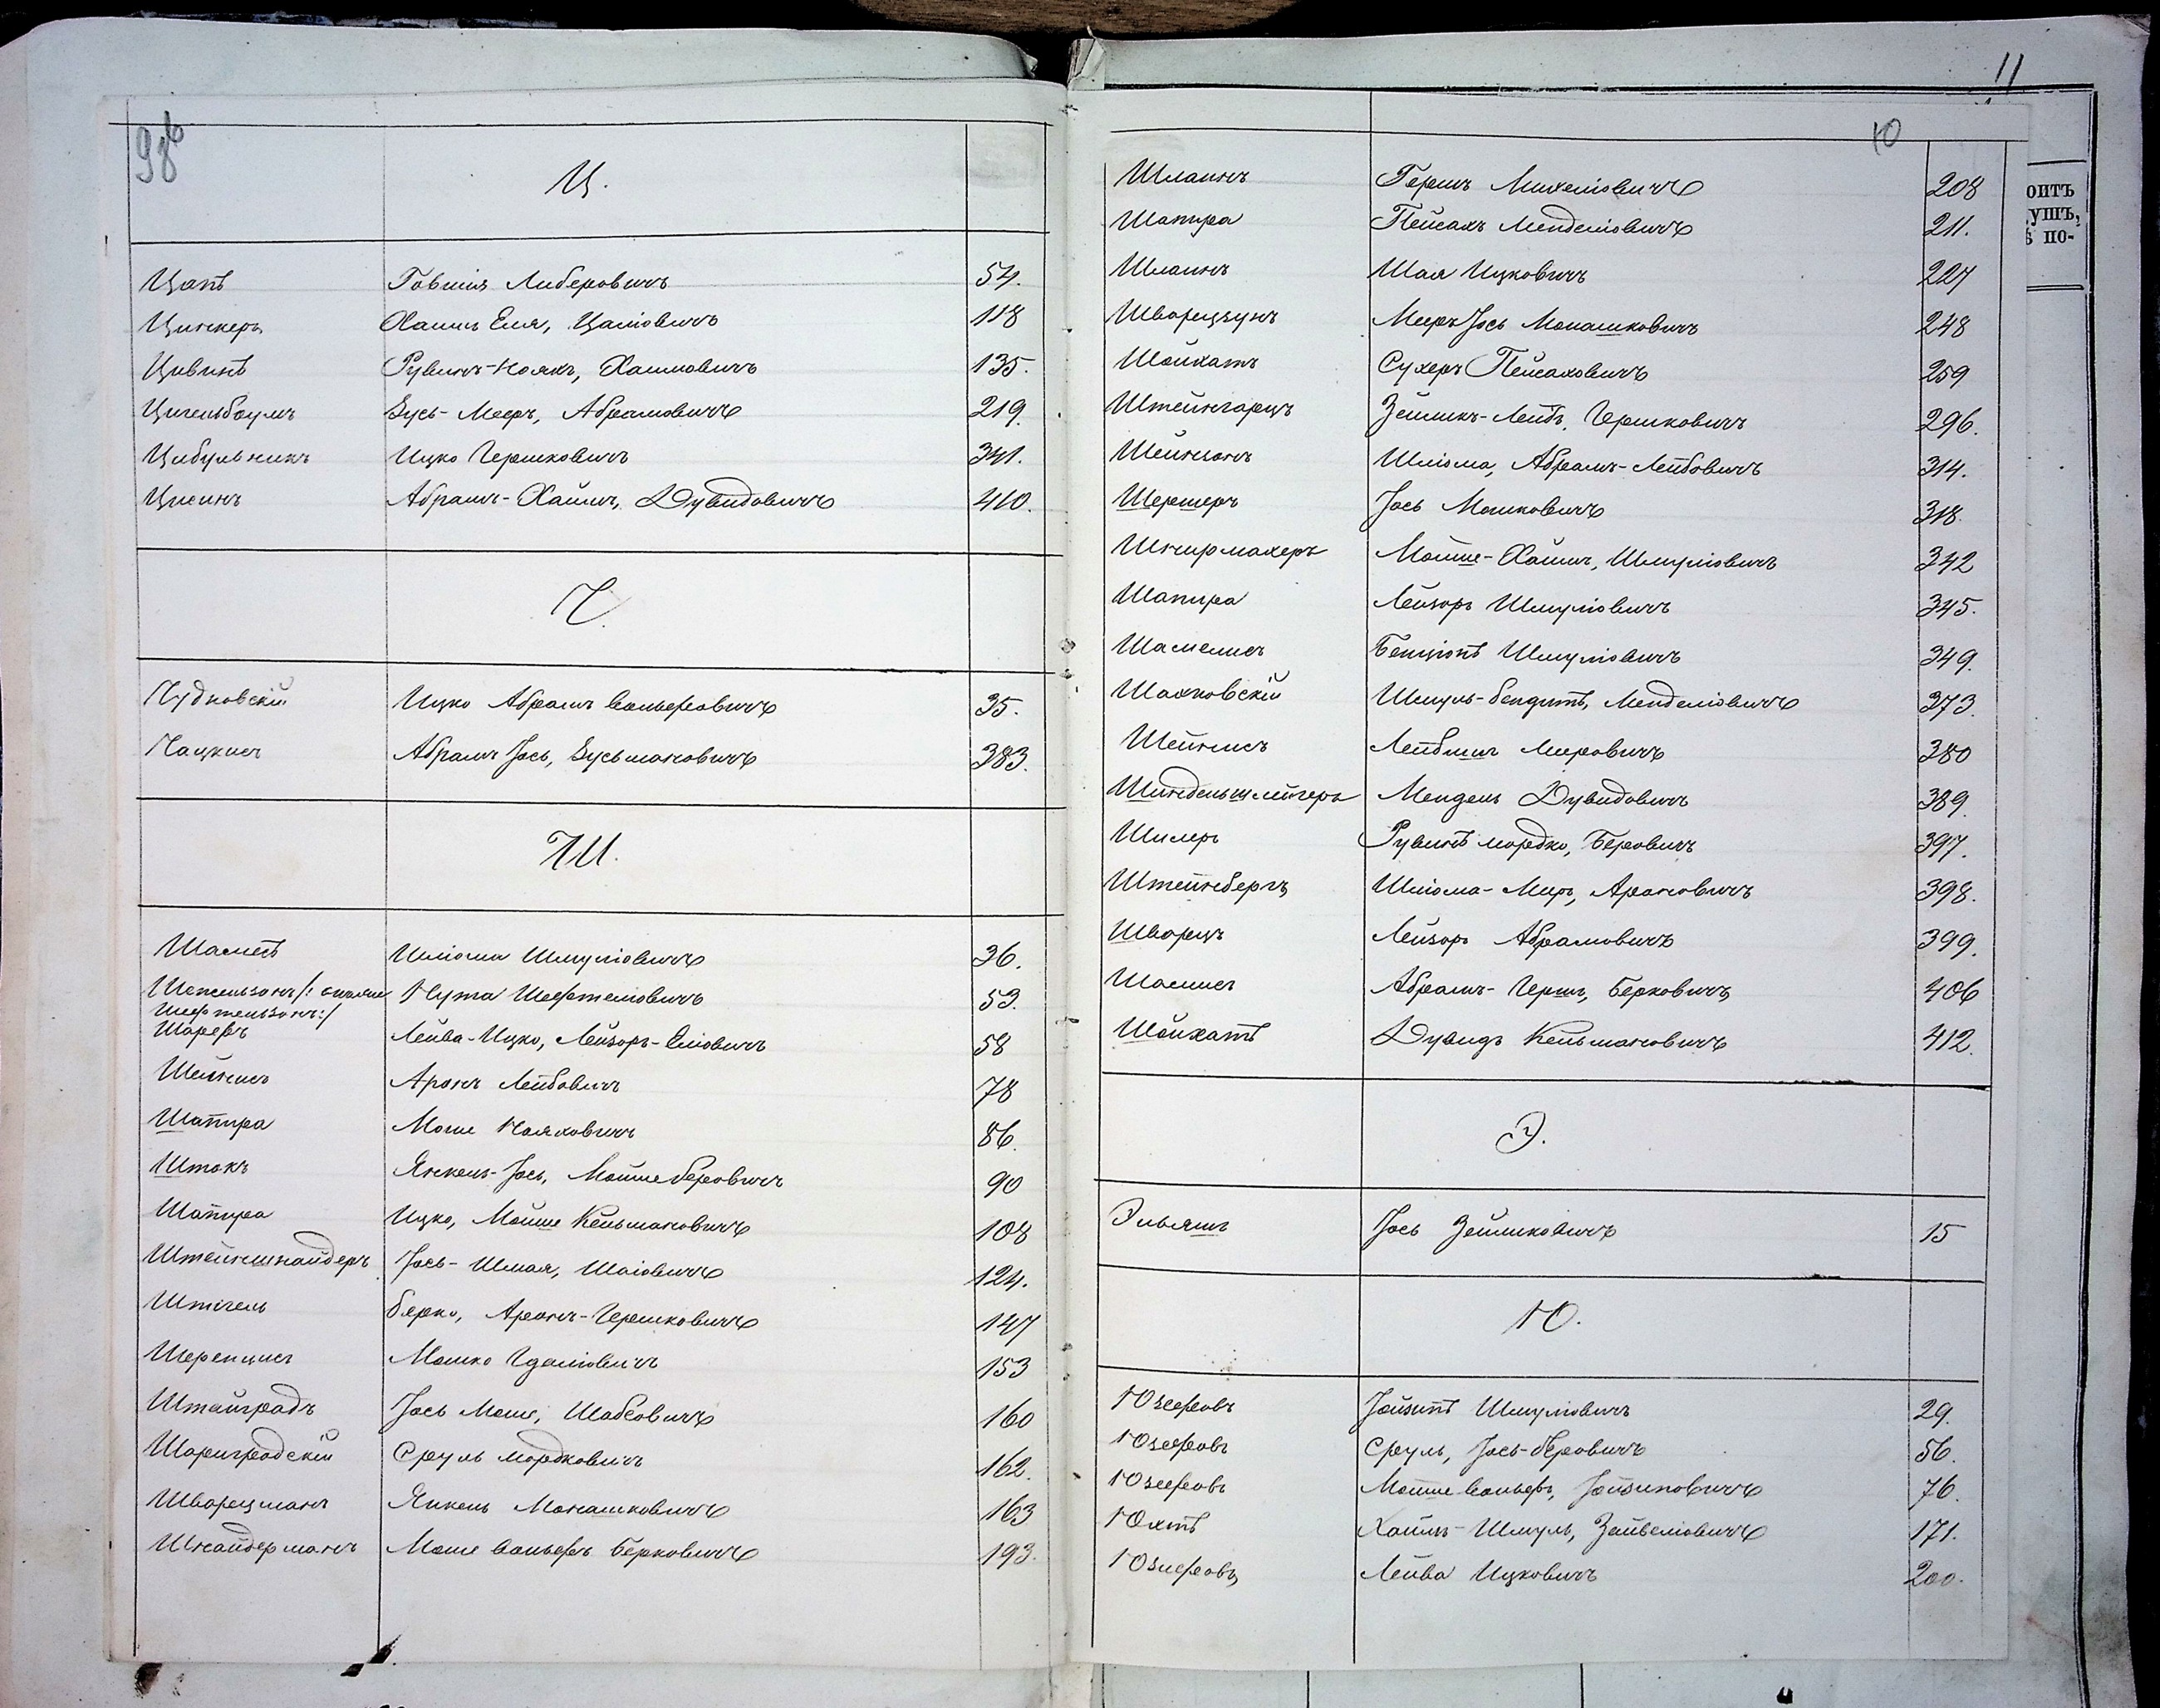 98
Ц.
Цапъ Говшія Либеровичъ 54.
Цинкеръ Хаимъ Еля, Цаліовичъ 118
Цивинъ Рувинъ-Нояхъ, Хаимовичъ 135.
Цигельбаумъ Зусь-Меер, Абрамовичъ 219.
Цибульникъ Ицко Гершковичъ 341.
Цисинъ Абрамъ-Хаймъ, Дувидовичъ 410.
Ч.
Чудновскій Ицко Абрамъ Вольфовичъ 35.
Чацкисъ Абрамъ Іось, Зусьмановичъ 383.
Ш.
Шамесъ Шліома Шмуліовичъ 36.
Шефтельзонъ:/ Нута Шефтеліовичъ 53.
Шарефъ Лейба-Ицко, Лейзоръ-Еліовичъ 58
Шейнисъ Аронъ Лейбовичъ 78
Шапира Моше Нояховичъ 86.
Штокъ Янкель-Іось, Мойше Беровичъ 90
Шапира Ицко, Мойше Кельмановичъ 108
Штейншнайдеръ Іось-Шмая, Шаіовичъ 124.
Штигель Берко, Аронъ-Гершковичъ 147
Шеренцисъ Мошко Гдаліовичъ 153
Штайградъ Іось Моше, Шабсовичъ 160
Шариградскій Сруль Мордковичъ 162.
Шварцманъ Янкель Монашковичъ 163
Шнайдерманъ Моше Вольфъ Берковичъ 193.
11
10
Шлаинъ Гершъ Михеліовичъ 208
Шапира Пейсахъ Менделіовичъ 211.
Шлаинъ Шая Ицковичъ 227
Мееръ Іось Монашковичъ 248
Шойхатъ Сухеръ Пейсаховичъ 259
Штейнгарцъ Зейликъ-Лейбъ, Гершковичъ 296.
Шліома, Абрамъ-Лейбовичъ 314.
Шершеръ Іось Мошковичъ 318.
Шнирмахеръ Мойше-Хаимъ, Шмуліовичъ 342
Шапира Лейзоръ Шмуліовичъ 345.
Шамелисъ Бенціонъ Шмуліовичъ 349.
Шаховскій Шмуль-Бендитъ, Менделіовичъ 373.
Шейнисъ Лейбишъ Мееровичъ 380
Шиндельшлейгеръ Мендель Дувидовичъ 389.
Шилеръ Рувинъ Мордко, Беровичъ 397.
Штейнбергъ Шліома-Меер, Ароновичъ 398.
Шварцъ Лейзоръ Абрамовичъ 399.
Шамисъ Абрамъ-Гершъ, Берковичъ 406
Шойхатъ Дувидъ Кельмановичъ 412.
Э.
Эльяшъ Іось Зейликовичъ 15
Ю.
Юзефовъ Іойзипъ Шмуліовичъ 29.
Юзефовъ Сруль, Іось-Беровичъ 56.
Юзефовъ Мойше Вольфъ, Іойзиповичъ 76.
Юхтъ Хаимъ-Шмуль, Зейвеліовичъ 171.
Юзифовъ Лейба Ицковичъ 200.
оитъ
ушъ,
ѣ по-